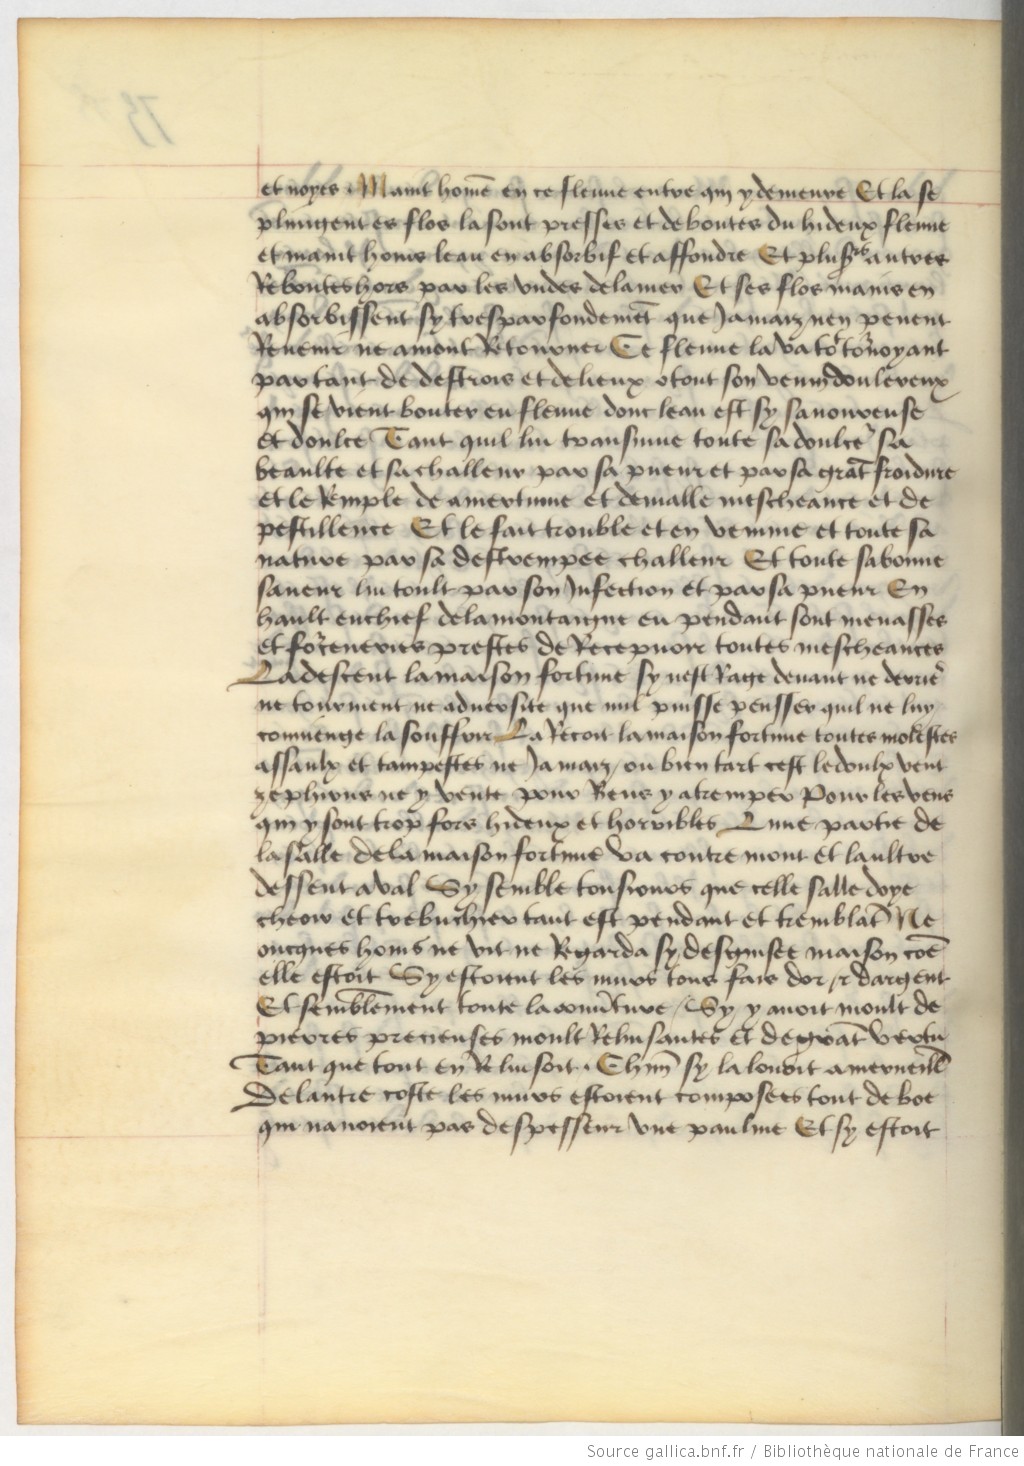 et noyes . Maint home en ce fleuue entre qui y demeure Et la se
plungent es flos la sont presses et deboutes du hideux fleuue
et maint homs leau en absorbist et affondre Et plusrs autres
Reboutes hors par les vndes de la mer Et ses flos mains en
absorbissent sy tresparfondemet que Jamaiz nen peuent
Reuenir ne amont Retourner Ce fleuue la va tornoyant
par tant de destrois et de lieux o tout son venin douleureux
qui se vient bouter en fleuue donc leau est sy sauoureuse
et doulce Tant quil lui transmue toute sa doulcer sa
beaulte et sa challeur par sa pueur et par sa grat froidure
et le Remple de amertume et de malle mescheance et de
pestillence Et le fait trouble et en venime et toute sa
nature par sa destrempee challeur Et toute sa bonne
saueur lui toult par son Infection et par sa pueur En
hault en chief de la montaigne en pendant sont menasses
et forceneries prestes de Recepuoir toutes mescheances
La descent la maison fortune sy nest Rage deuant ne derrie
ne tourment ne aduersite que nul puisse pensser quil ne luy
conuienge la souffrir La Recoit la maison fortune toutes molestes
assaulx et tampestes ne Jamaiz / ou bien tart cest le doulx vent
zephirus ne y vente pour Riens y atremper Pour les vens
qui y sont trop fors hideux et horribles Lune partie de
la salle de la maison fortune va contre mont et laultre
dessent aval Sy semble tousiours que celle salle doye
cheoir et trebuchier tant est pendant et tremblat Ne
oncques homs ne vit ne Regarda sy desguisee maison coe
elle estoit Sy estoient les murs tous fais dor / et dargent
Et semblement toute la couuerture / Sy y auoit moult de
pierres precieuses moult Reluisantes et de grat vertu
Tant que tout en Reluisoit . Chun sy la louoit a merueill
De lautre coste les murs estoient composees tout de boe
qui nauoient pas despesseur vne paulme Et sy estoit
Source gallica.bnf.fr / Bibliothèque nationale de France